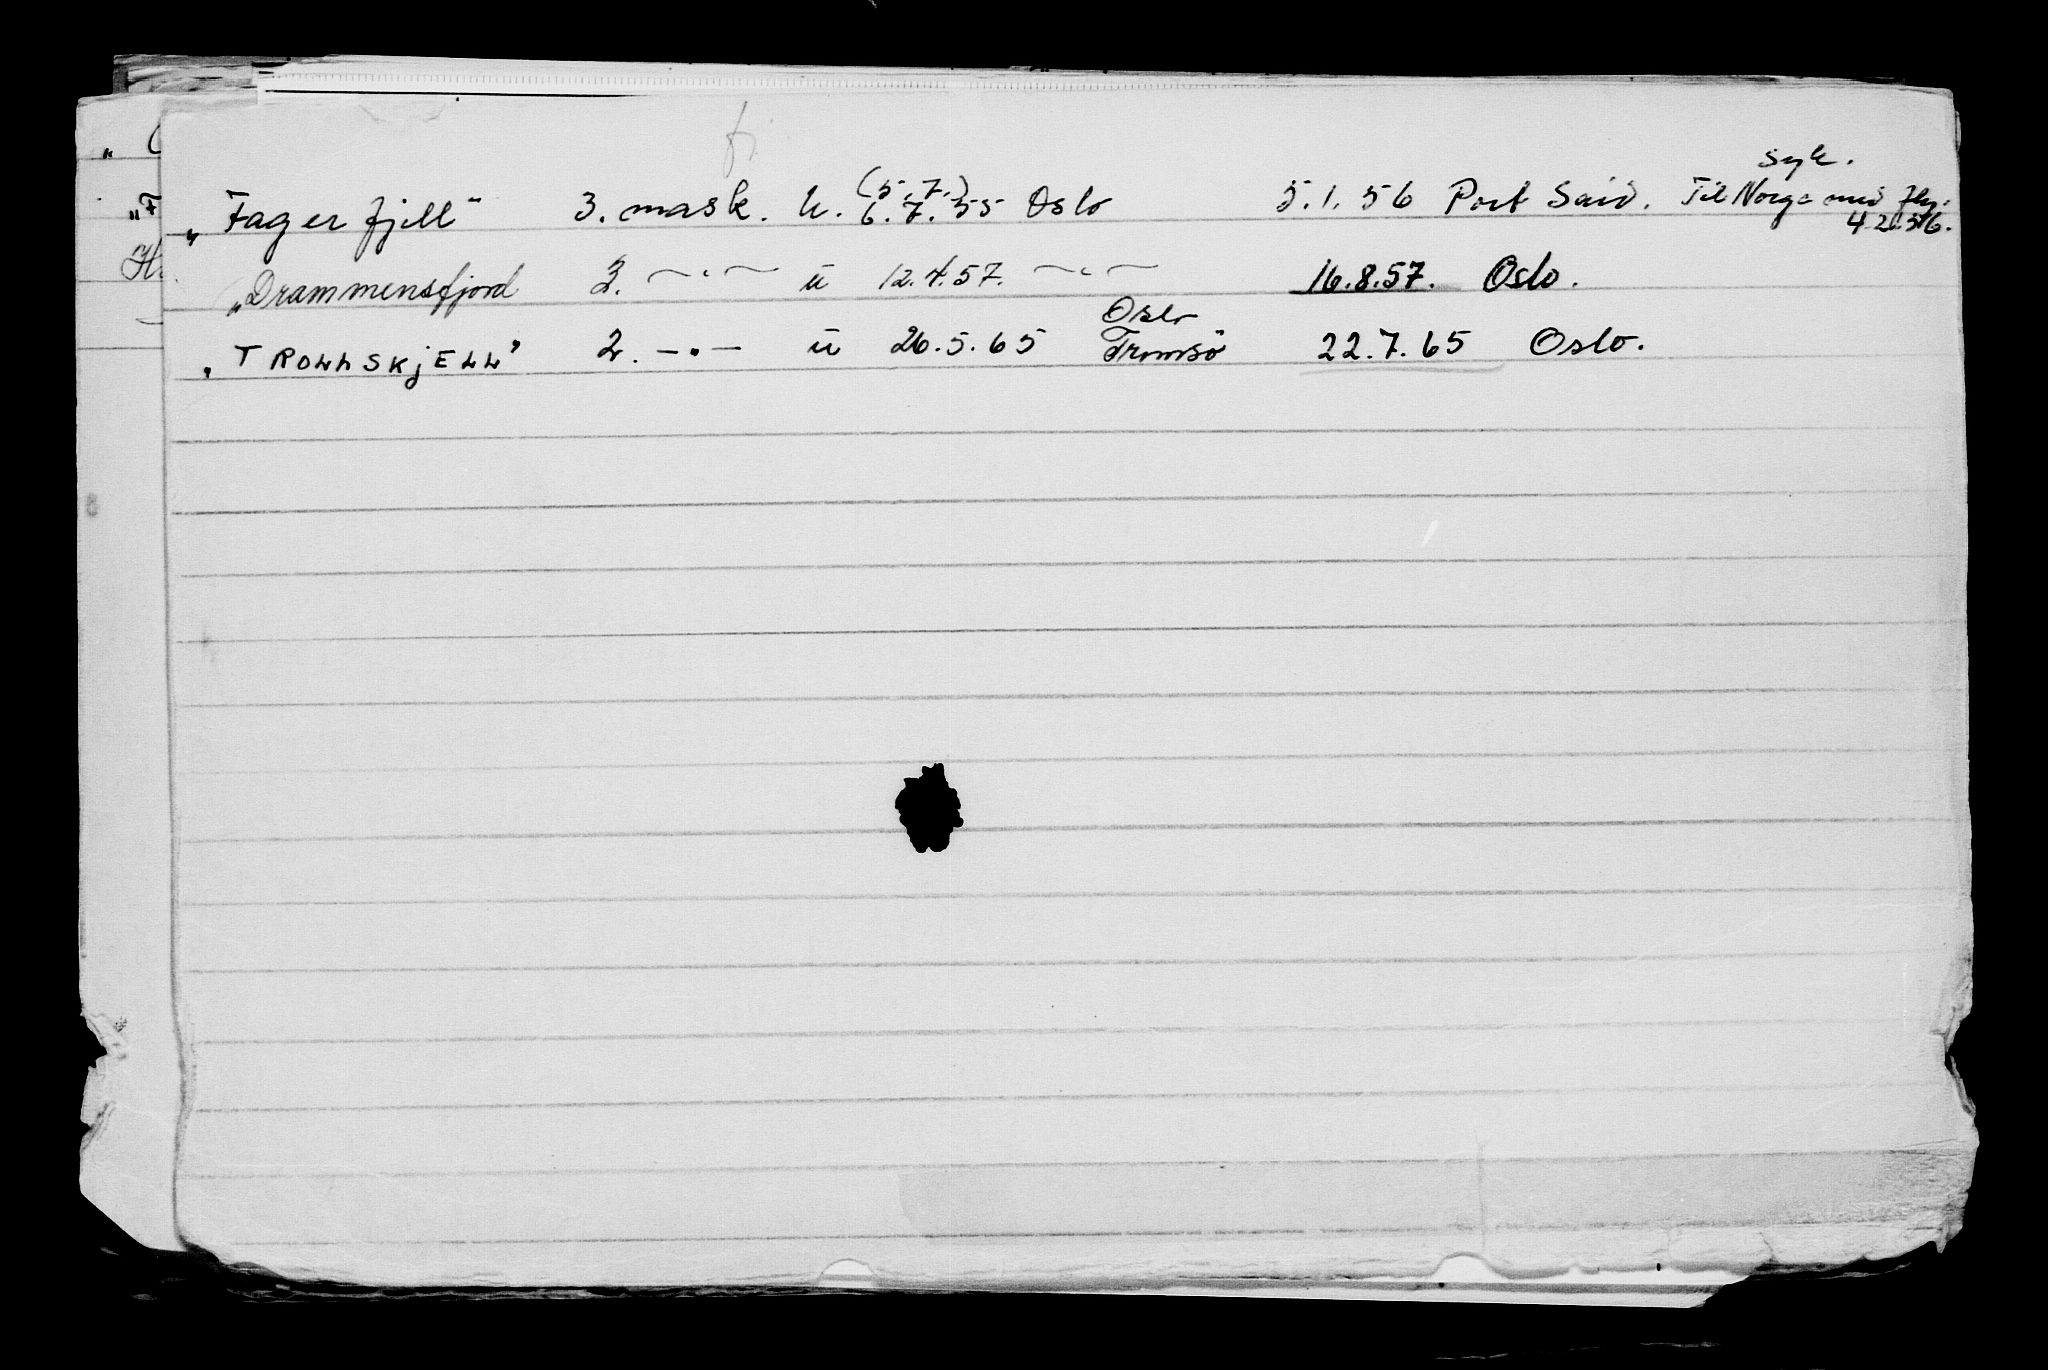 syk.
„Fagerfjell“ 3. mask. u. (5.7.) 6.7.55 Oslo 5.1.56 Port Said. Til Norge med fly. 4.2.56.
„Drammensfjord 2. —〃— u 12.4.57. —〃— 16.8.57. Oslo.
„TROLLSKJELL” 2. —〃— u 26.5.65 Oslo Tromsö 22.7.65 Oslo.